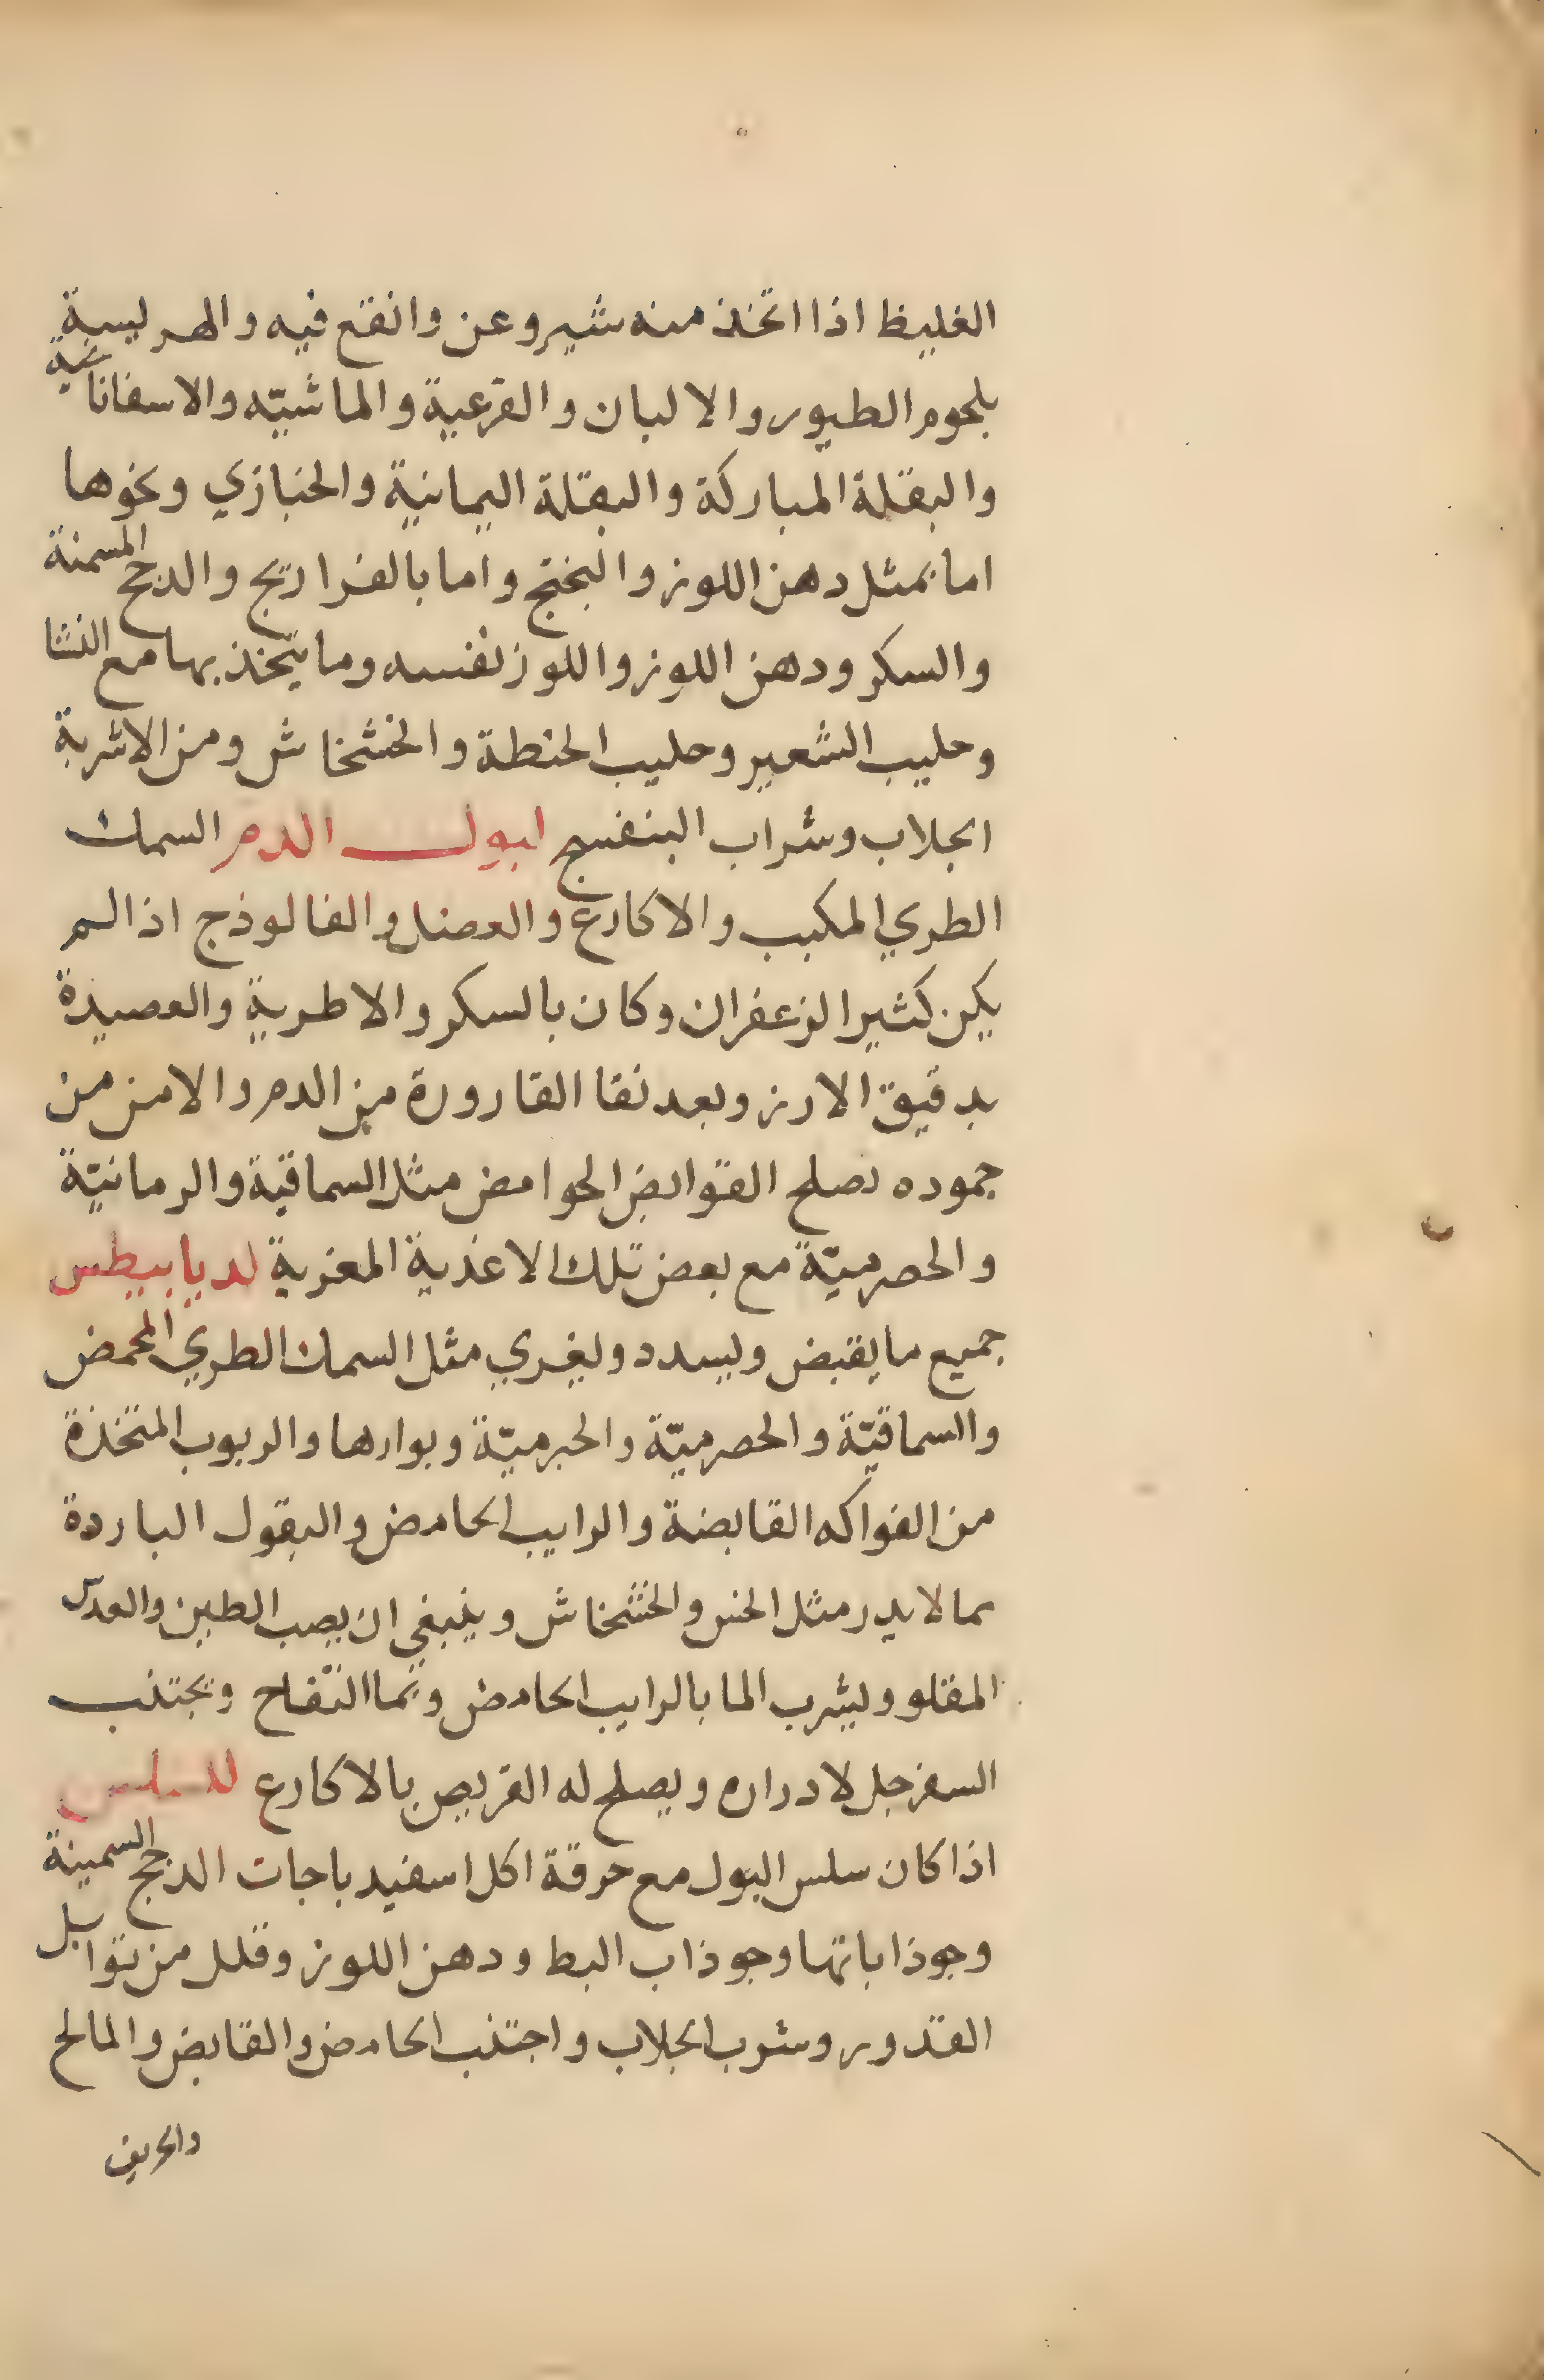 الغليظ اذا اتخذ منه شيروعن وانقع فيه والهريسة
بلحوم الطيور والالبان والقرعية والماشيّه والاسفاناخية
والبقلة المباركة والبقلة اليمانية والخبازي ونحوها
اما بمثل دهن اللوز والبختج واما بالفراريج والدجج المسمنة
والسكر ودهن اللوز واللوز نفسه وما يتخذ بها مع النشا
وحليب الشعير وحليب الحنطة والخشخاش ومن الاشربة
الجلاب وشراب البنفسج لبول الدم السمك
الطري المكبب والاكارع والعضل والفالوذج اذا لم
يكن كثير الزعفران وكان بالسكر والاطرية والعصيدة
بدقيق الارز وبعد نقا القارورة من الدم والامن من
جموده تصلح القوابض الحوامض مثل السماقية والرمانيّة
والحصرميّة مع بعض تلك الاغذية المغرية لديابيطس
جميع ما يقبض ويسدد ويغري مثل السمك الطري المحمض
والسماقيّة والحصرميّة والحبرميّة وبوارها والربوب المتخذة
من الفواكه القابضة والرايب الحامض والبقول الباردة
مما لا يدر مثل الخس والخشخاش وينبغي ان يصب الطين والعدس
المقلو ويشرب الما بالرايب الحامض وبما التفاح وتجتنب
السفرجل لادراره ويصلح له القريص بالاكارع للسلس
اذا كان سلس البول مع حرقة اكل اسفيدباجات الدجج السمينة
وجوذاباتها وجوذاب البط ودهن اللوز وقلل من توابل
القدور وشرب الجلاب واجتنب الحامض والقابض والمالح
والحريف